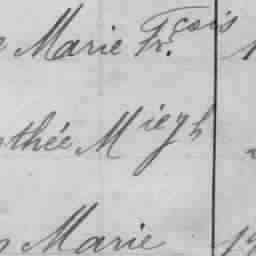 Marie Fr.çois
thée Miegh
Marie